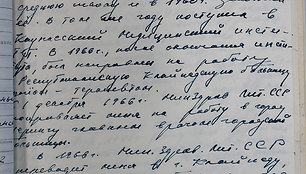 среднюю школу и в 1960г.
В том же году поступил в
Каунасский Медицинский инсти-
тут. В 1966г., после окончания инсти-
тута был направлен на работу
Республиканскую Клайпедскую больницу
терапевтом.
1 декабря 1966г. Мин. Здрав. Лит. ССР
меня на работу в город
главным врачом городской
больницы.
В 1968г. Мин. Здрав. Лит. ССР
переводит меня в г. Клайпеду,